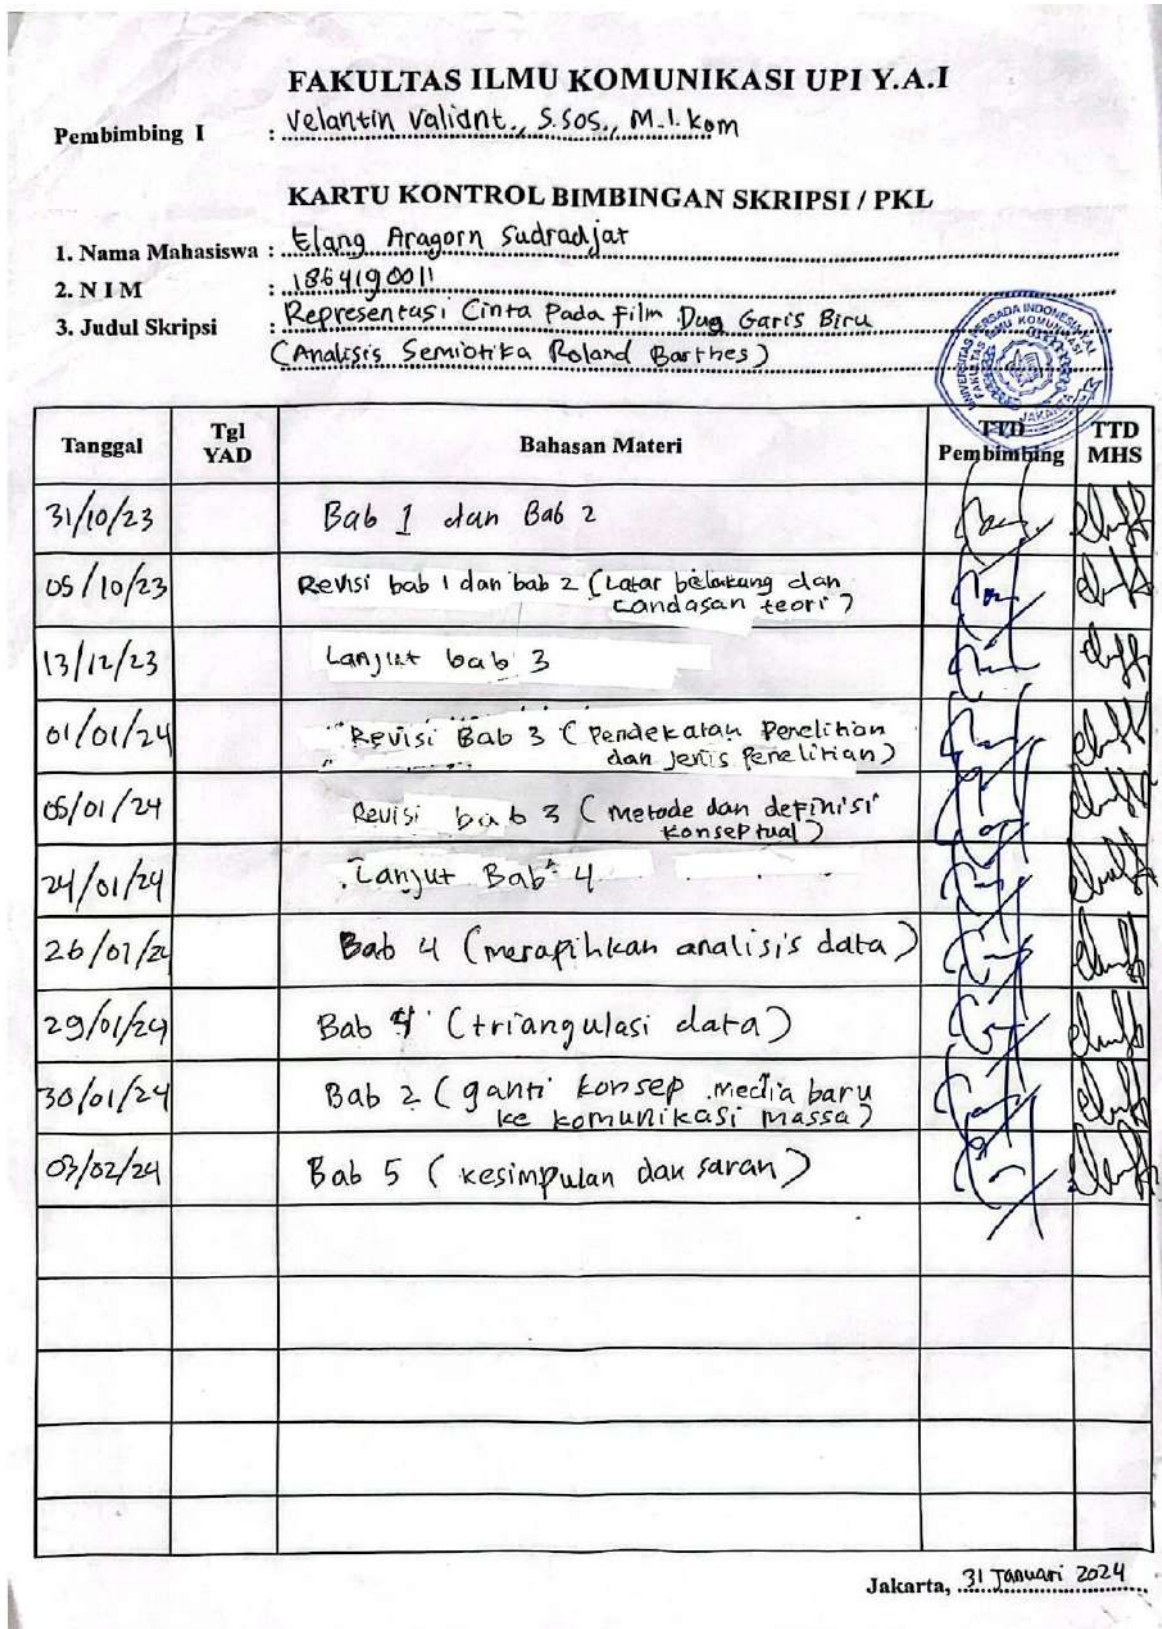 FAKULTAS ILMU KOMUNIKASI UPI Y.A.I
Pembimbing I : Velantin Valiant., S.Sos., M.I.Kom
KARTU KONTROL BIMBINGAN SKRIPSI / PKL
1. Nama Mahasiswa : Elang Aragorn Sudradjat
2. N I M : 1864190011
3. Judul Skripsi : Representasi Cinta Pada Film Dua Garis Biru
(Analisis Semiotika Roland Barthes)
Tanggal Tgl YAD Bahasan Materi TTD Pembimbing TTD MHS
31/10/23 Bab 1 dan Bab 2
05/10/23 Revisi bab 1 dan bab 2 (Latar belakang dan
Landasan teori)
13/12/23 Lanjut bab 3
01/01/24 Revisi Bab 3 (Pendekatan Penelitian
dan jenis Penelitian)
05/01/24 Revisi bab 3 (metode dan definisi
konseptual)
24/01/24 Lanjut Bab 4
26/01/24 Bab 4 (merapihkan analisis data)
29/01/24 Bab 4 (triangulasi data)
30/01/24 Bab 2 (ganti konsep media baru
ke komunikasi massa)
03/02/24 Bab 5 (kesimpulan dan saran)
Jakarta, 31 Januari 2024